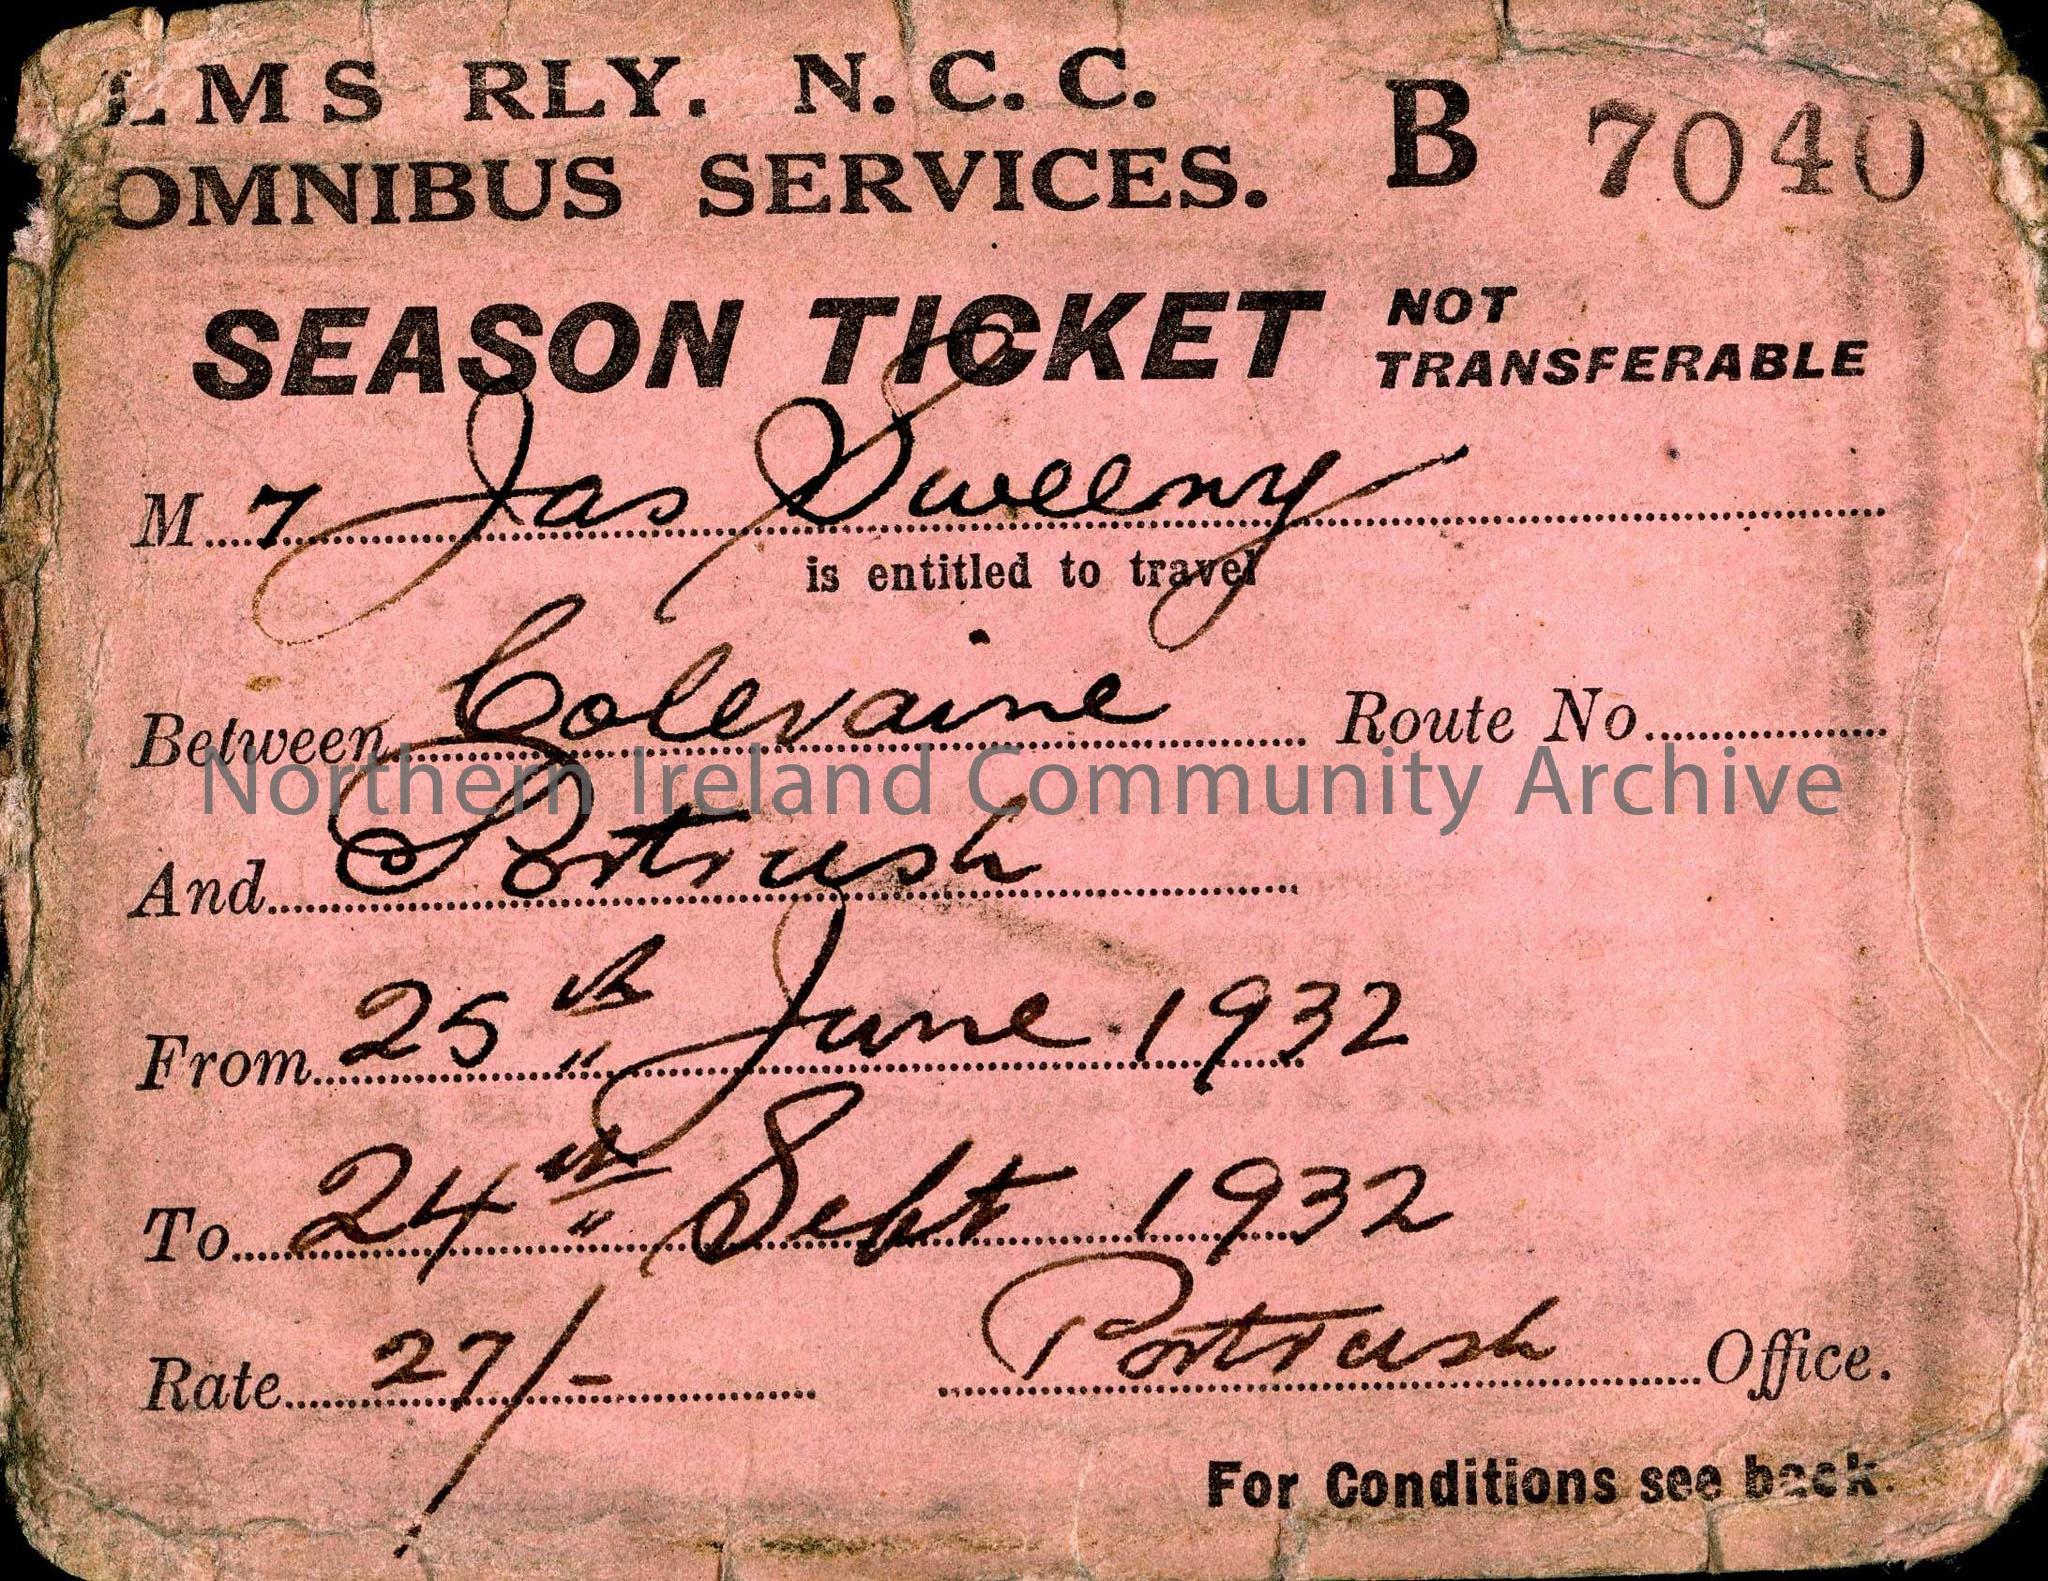 LMS RLY. N.C.C. B 7040
OMNIBUS SERVICES.
SEASON TICKET NOT TRANSFERABLE
Mr Jas Sweeny
is entitled to travel
Between Coleraine Route No.
Northern Ireland Community Archive
And Portrush
From 25th June 1932
To 24th Sept 1932
Rate 27/- Portrush Office.
For Conditions see back.